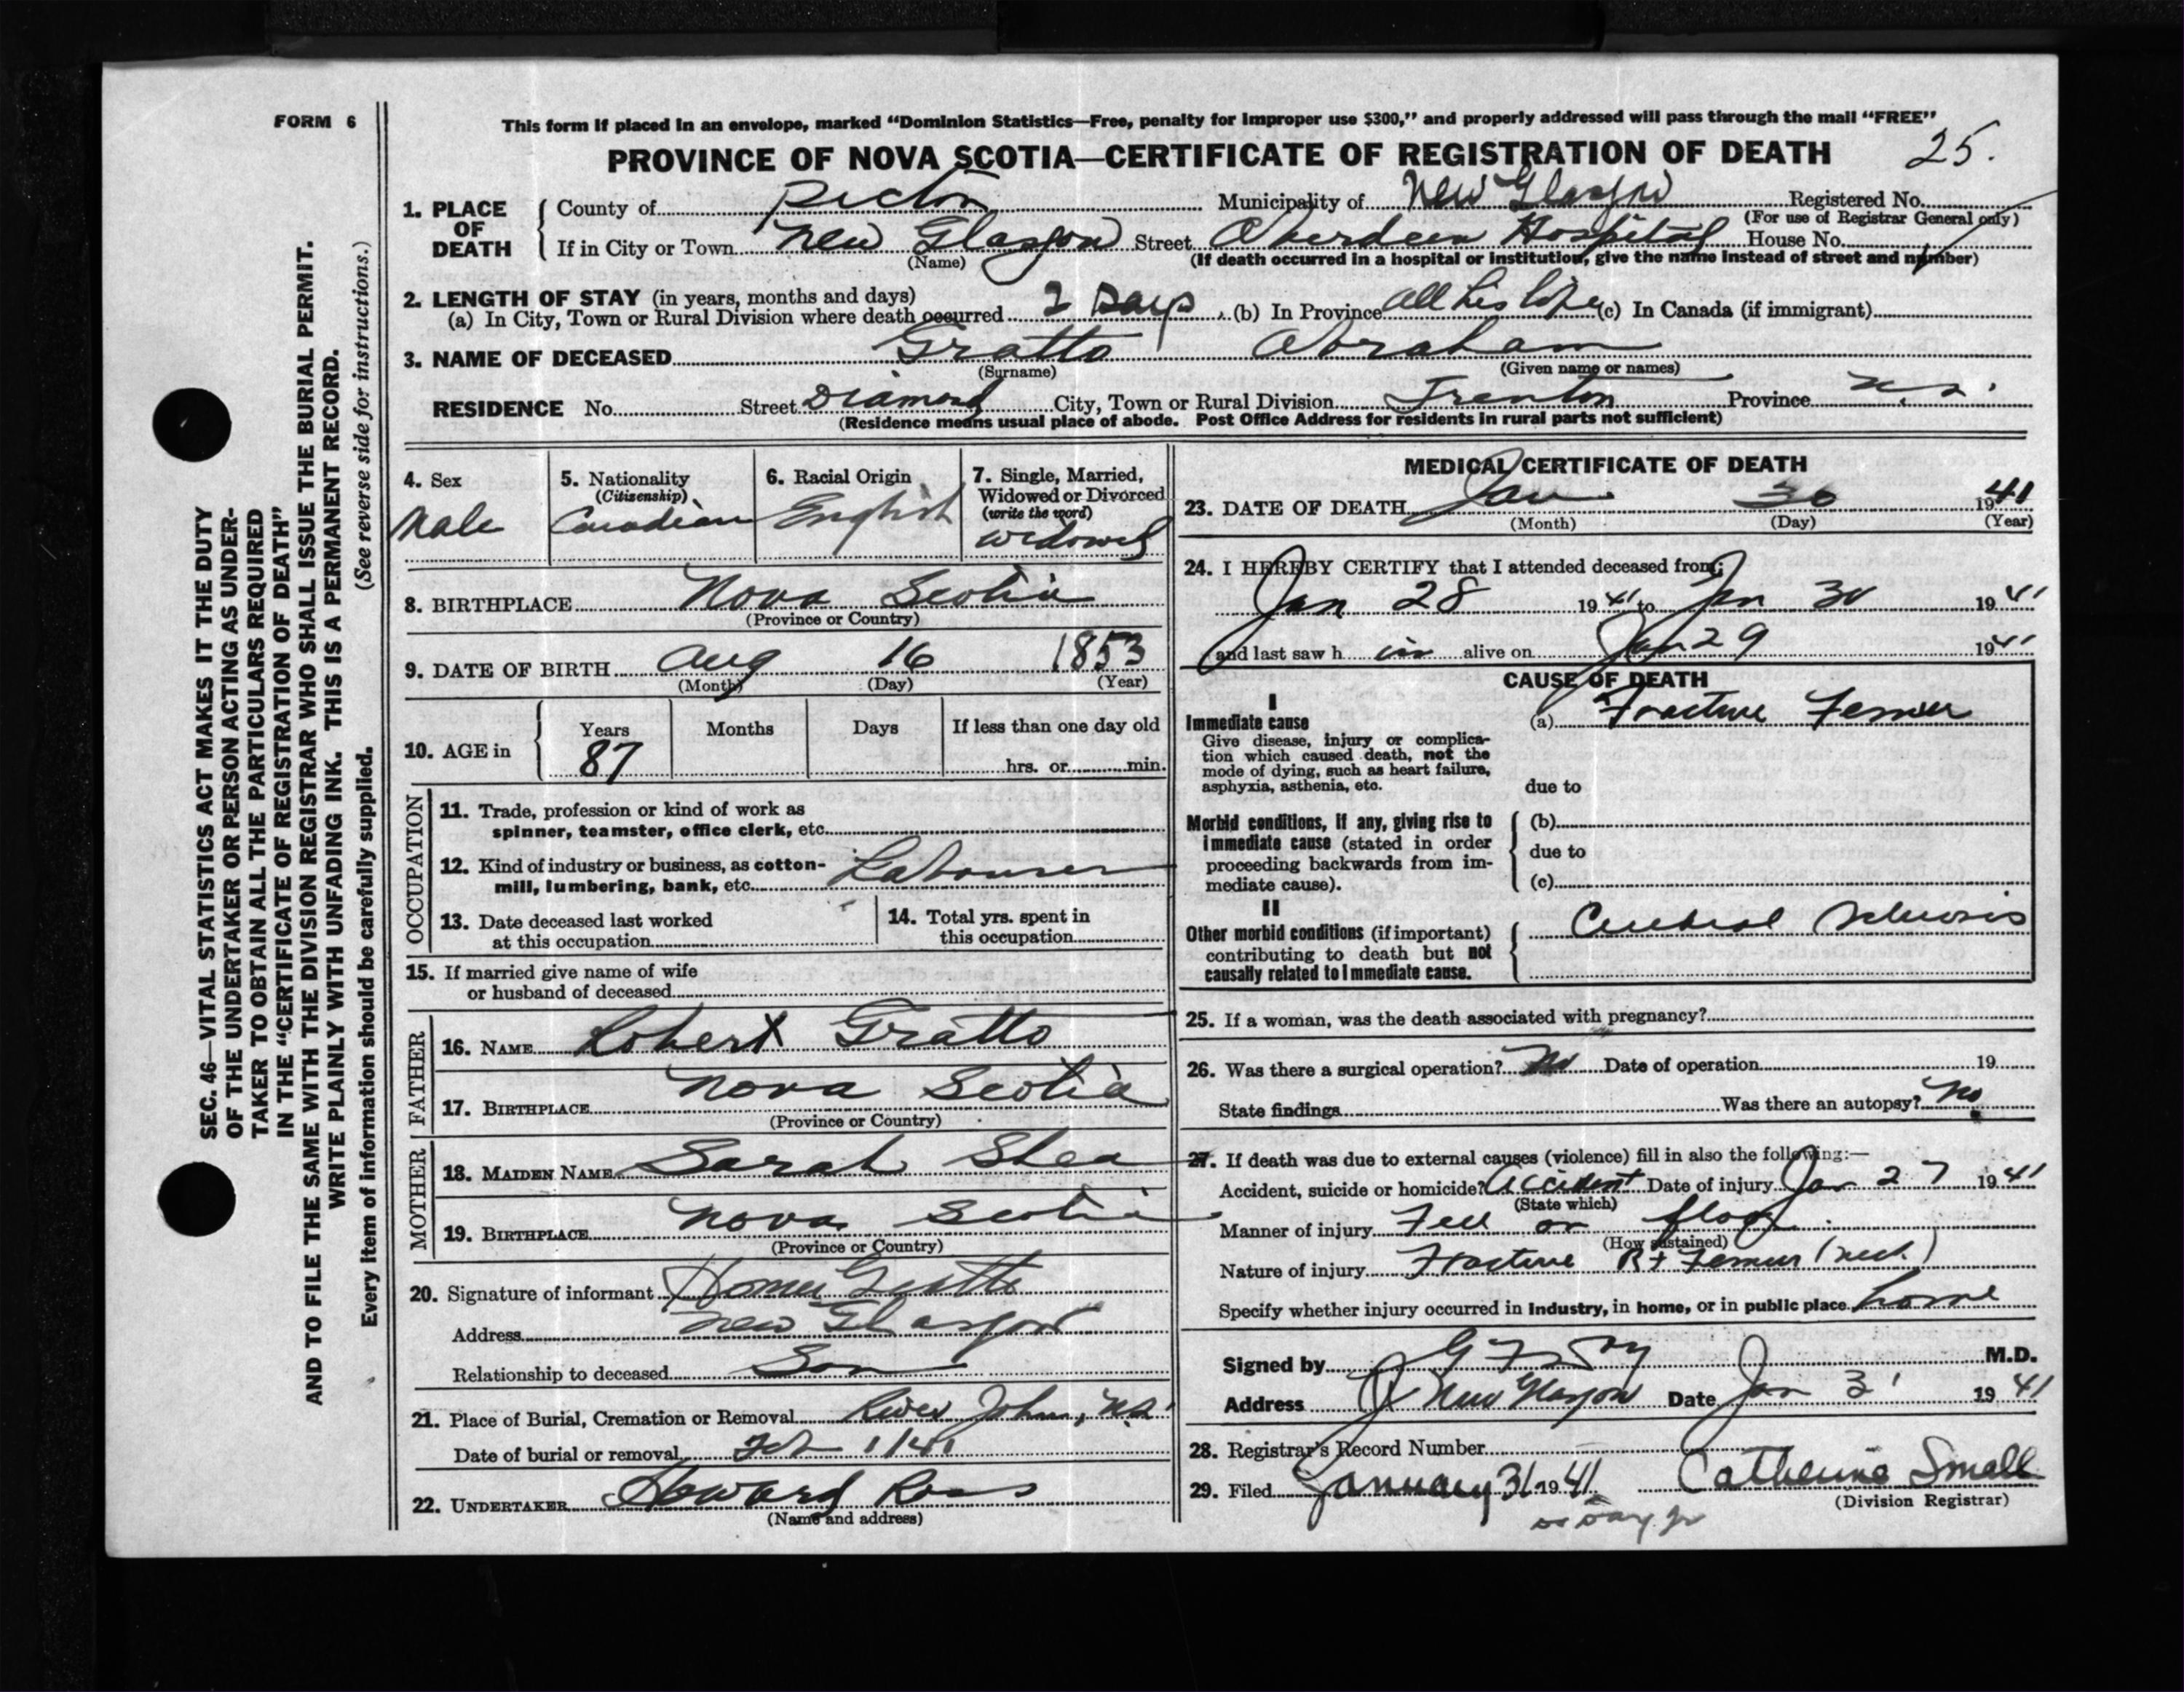 FORM 6
This form if placed in an envelope, marked “Dominion Statistics—Free, penalty for improper use $300,” and properly addressed will pass through the mail “FREE”
PROVINCE OF NOVA SCOTIA—CERTIFICATE OF REGISTRATION OF DEATH 25.
1. PLACE OF DEATH
County of Pictou Municipality of New Glasgow Registered No.
(For use of Registrar General only)
If in City or Town New Glasgow Street Aberdeen Hospital House No.
(Name) (If death occurred in a hospital or institution, give the name instead of street and number)
2. LENGTH OF STAY (in years, months and days)
(a) In City, Town or Rural Division where death occurred 2 Days (b) In Province All his life (c) In Canada (if immigrant)
3. NAME OF DECEASED Gratto Abraham
(Surname) (Given name or names)
RESIDENCE No. Street Diamond City, Town or Rural Division Trenton Province N.S.
(Residence means usual place of abode. Post Office Address for residents in rural parts not sufficient)
4. Sex
Male
5. Nationality
(Citizenship)
Canadian
6. Racial Origin
English
7. Single, Married,
Widowed or Divorced
(write the word)
Widowed
8. BIRTHPLACE Nova Scotia
(Province or Country)
9. DATE OF BIRTH Aug 16 1853
(Month) (Day) (Year)
10. AGE in
Years Months Days If less than one day old
87 hrs. or min.
OCCUPATION
11. Trade, profession or kind of work as
spinner, teamster, office clerk, etc.
12. Kind of industry or business, as cotton-
mill, lumbering, bank, etc. Labourer
13. Date deceased last worked
at this occupation
14. Total yrs. spent in
this occupation
15. If married give name of wife
or husband of deceased
FATHER
16. NAME Robert Gratto
17. BIRTHPLACE Nova Scotia
(Province or Country)
MOTHER
18. MAIDEN NAME Sarah Shea
19. BIRTHPLACE Nova Scotia
(Province or Country)
20. Signature of informant Homer Gratto
Address New Glasgow
Relationship to deceased Son
21. Place of Burial, Cremation or Removal River John, N.S.
Date of burial or removal Feb 1/41
22. UNDERTAKER Howard Ross
(Name and address)
MEDICAL CERTIFICATE OF DEATH
23. DATE OF DEATH Jan 30 1941
(Month) (Day) (Year)
24. I HEREBY CERTIFY that I attended deceased from:
Jan 28 1941 to Jan 30 1941
and last saw h im alive on Jan 29 1941
CAUSE OF DEATH
I
Immediate cause
Give disease, injury or complica-
tion which caused death, not the
mode of dying, such as heart failure,
asphyxia, asthenia, etc.
(a) Fracture Femur
due to
Morbid conditions, if any, giving rise to
immediate cause (stated in order
proceeding backwards from im-
mediate cause).
(b)
due to
(c)
II
Other morbid conditions (if important)
contributing to death but not
causally related to immediate cause.
Cerebral Sclerosis
25. If a woman, was the death associated with pregnancy?
26. Was there a surgical operation? No Date of operation 19
State findings Was there an autopsy? No
27. If death was due to external causes (violence) fill in also the following:—
Accident, suicide or homicide? Accident Date of injury Jan 27 1941
(State which)
Manner of injury Fell on floor
(How sustained)
Nature of injury Fracture Rt Femur (neck)
Specify whether injury occurred in industry, in home, or in public place home
Signed by M.D.
Address New Glasgow Date Jan 31 1941
28. Registrar's Record Number
29. Filed January 31 1941 Catherine Small
(Division Registrar)
SEC. 46—VITAL STATISTICS ACT MAKES IT THE DUTY
OF THE UNDERTAKER OR PERSON ACTING AS UNDER-
TAKER TO OBTAIN ALL THE PARTICULARS REQUIRED
IN THE “CERTIFICATE OF REGISTRATION OF DEATH”
AND TO FILE THE SAME WITH THE DIVISION REGISTRAR WHO SHALL ISSUE THE BURIAL PERMIT.
WRITE PLAINLY WITH UNFADING INK. THIS IS A PERMANENT RECORD.
Every item of information should be carefully supplied. (See reverse side for instructions.)